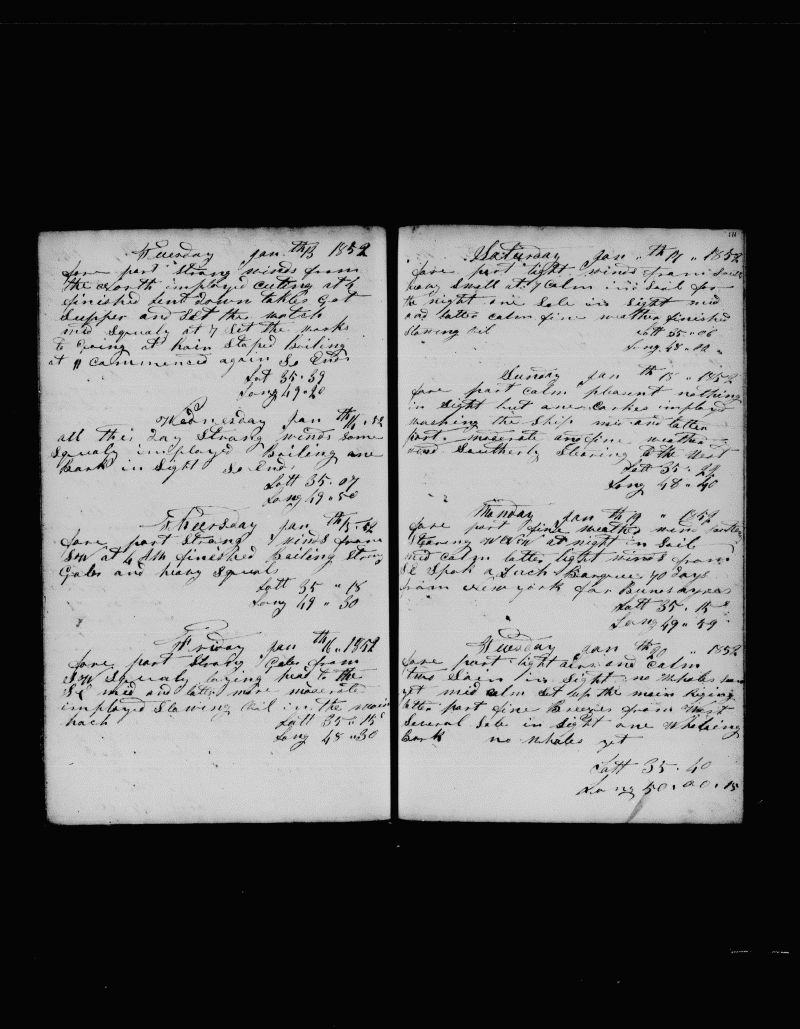 Tuesday Jan th 13 1852
fore part Strong winds from
the North imployed cutting at 6
finished sent down takles Got
Supper and Set the watch
mid Squaly at 7 Set the works
to Going at hain Stoped Boiling
at 11 Commenced again So Ends
Lat 35-39
Long 49-20
Wednesday Jan th 14 - 52
all this day Strong winds some
Squaly imployed Boiling one
bark in Sight So Ends
Latt 35-07
Long 49-50
Thursday Jan th 15-52
fore part Strong winds from
SW at 4 finished Boiling Strong
Gales and heavy Squals
Latt 35 " 18
Long 49 " 30
Friday Jan th 16, 1852
fore part Strong Gales from
SW Squaly laying head to the
SE mid and latter more moderate
imployed Stowing Oil in the main
hach
Latt 35 " 15
Long 48 " 30
Saturday Jan " th 17 " 1852
fore part light winds from
heavy Swell at 7 Calm in Sail for
the night one Sale in Sight mid
and latter calm fine weather finished
Stowing Oil
Latt 35-06
Long 48-00
Sunday Jan th 18 " 1852
fore part calm pleasant nothing
in Sight but one imployd
washing the Ship mid and latter
part moderate and fine weather
wind Southerly Stearing to the West
Latt 35-29
Long 48-40
Monday Jan th 19 " 1852
fore part fine weather wind
Stearing WNW at night in Sail
mid calm latter light winds from
SE Spok a Barque 40 days
from New york for
Latt 35-15
Long 49-59
Tuesday Jan th 20 " 1852
fore part light airs and calm
two Sail in Sight no Whales
yet mid calm Set up the main Riging
latter part fine Breezes from West
Several Sale in Sight one Whaleing
Bark no whales yet
Latt 35-40
Long 50-00-15